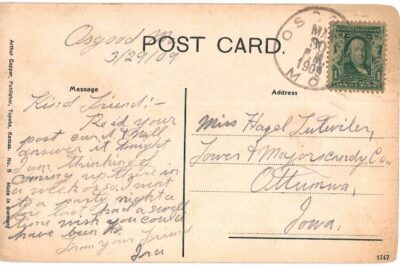 Osgood Mo.
3/29/09
POST CARD.
OSGOOD
MAR
30
1909
MO.
Message
Address
Kind Friend:-
Recd your
post card & will
answer it tonight
am thinking of
coming up there in
a week or so, I went
to a party night a
fore last had a swell
time wish you could
have been to.
From your Friend
Ira
Miss Hazel Tutwiler,
Lower & Major candy Co.
Ottumwa,
Iowa.
Arthur Capper, Publisher, Topeka, Kansas. No. 8 Made in Germany
1747